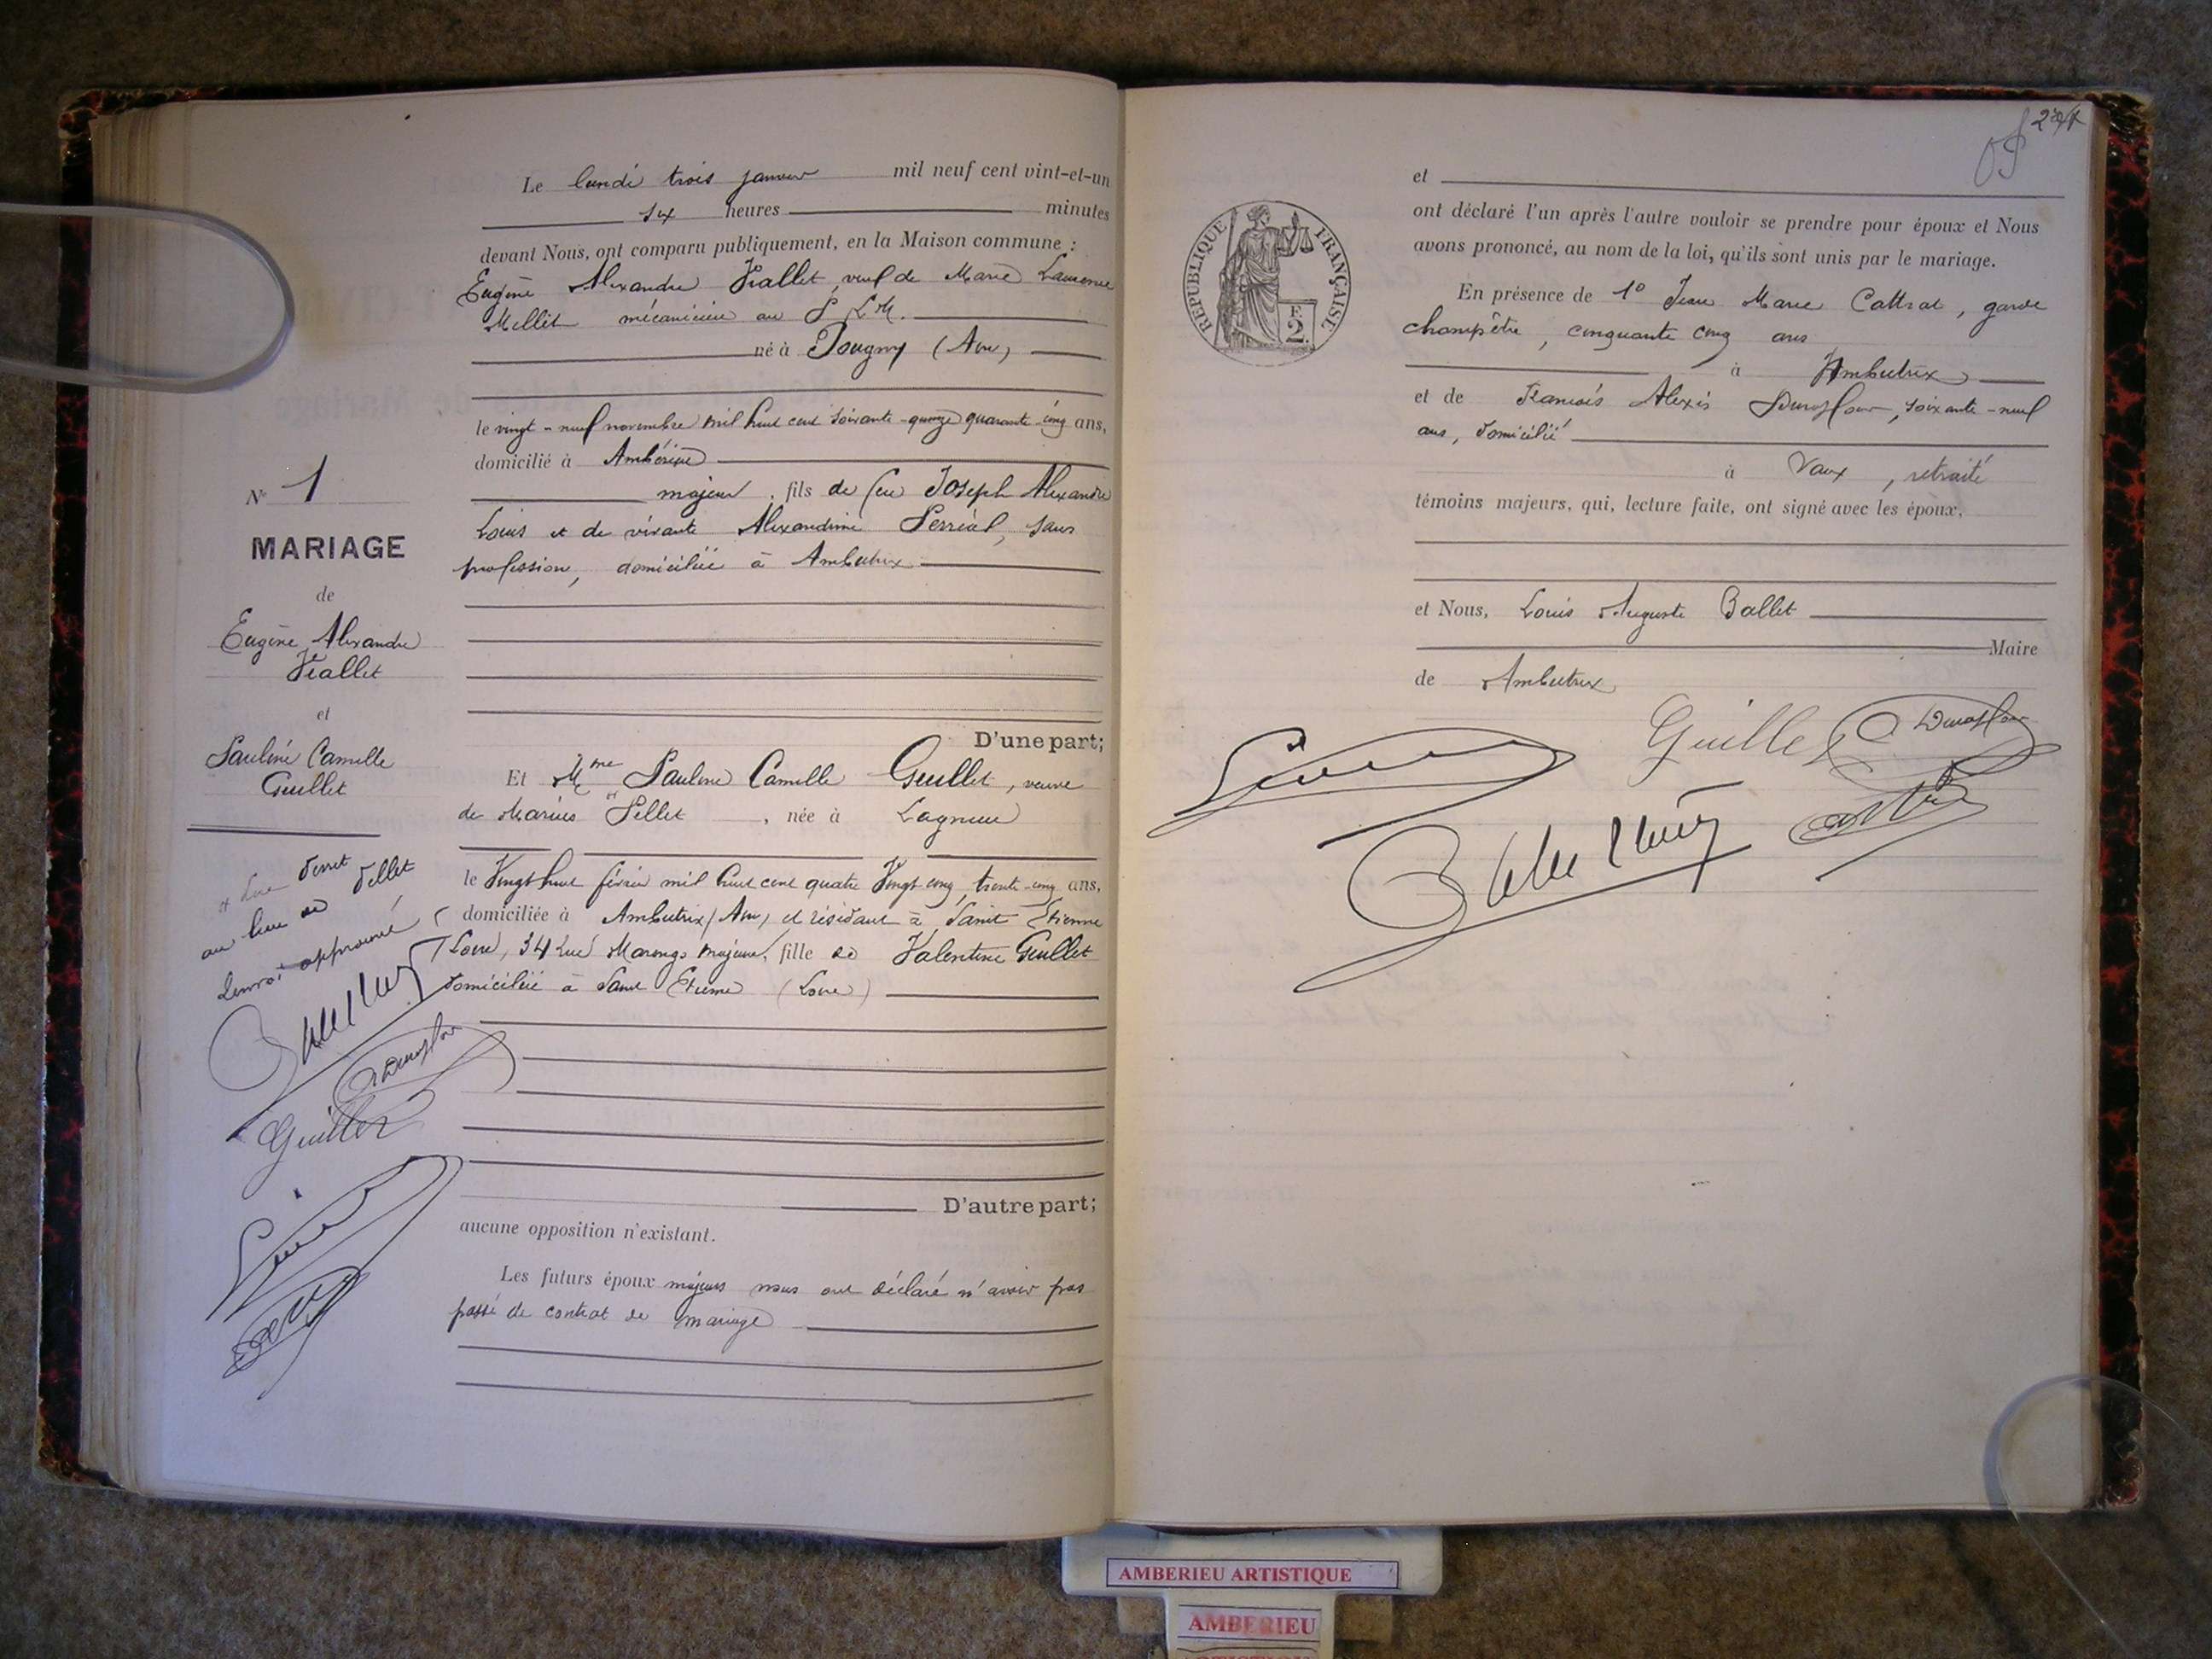 Le lundi trois janvier mil neuf cent vint-et-un
six heures minutes
devant Nous, ont comparu publiquement, en la Maison commune :
Eugène Alexandre Viallet, veuf de Marie Laurence
Millet mécanicien au P. L. M.
né à Pougny (Ain)
le vingt-neuf novembre mil huit cent soixante-quinze quarante-cinq ans,
domicilié à Ambérieu
majeur, fils de feu Joseph Alexandre
Louis et de vivante Alexandrine Perréal, sans
profession, domiciliée à Ambutrix
D'une part;
Et Mme Pauline Camille Guillet, veuve
de Marius Pellet, née à Lagnieu
le Vingt huit février mil huit cent quatre Vingt cinq, trente-cinq ans,
domiciliée à Ambutrix (Ain) et résidant à Saint Etienne
(Loire, 34 Rue Marengo majeure, fille de Valentine Guillet
domiciliée à Saint Etienne (Loire)
D'autre part;
aucune opposition n'existant.
Les futurs époux majeurs nous ont déclaré n'avoir pas
passé de contrat de mariage
N° 1
MARIAGE
de
Eugène Alexandre
Viallet
et
Pauline Camille
Guillet
Lire
au lieu de Pellet
Renvoi approuvé
Guillet
et
ont déclaré l'un après l'autre vouloir se prendre pour époux et Nous
avons prononcé, au nom de la loi, qu'ils sont unis par le mariage.
En présence de 1° Jean Marie Cattrat, garde
champêtre, cinquante cinq ans
à Ambutrix
et de François Alexis Duraffour, soixante-neuf
ans, domicilié
à Vaux, retraité
témoins majeurs, qui, lecture faite, ont signé avec les époux,
et Nous, Louis Auguste Ballet
Maire
de Ambutrix
Guillet Duraffour
RÉPUBLIQUE FRANÇAISE
E
2.
AMBERIEU ARTISTIQUE
AMBERIEU
ARTISTIQUE